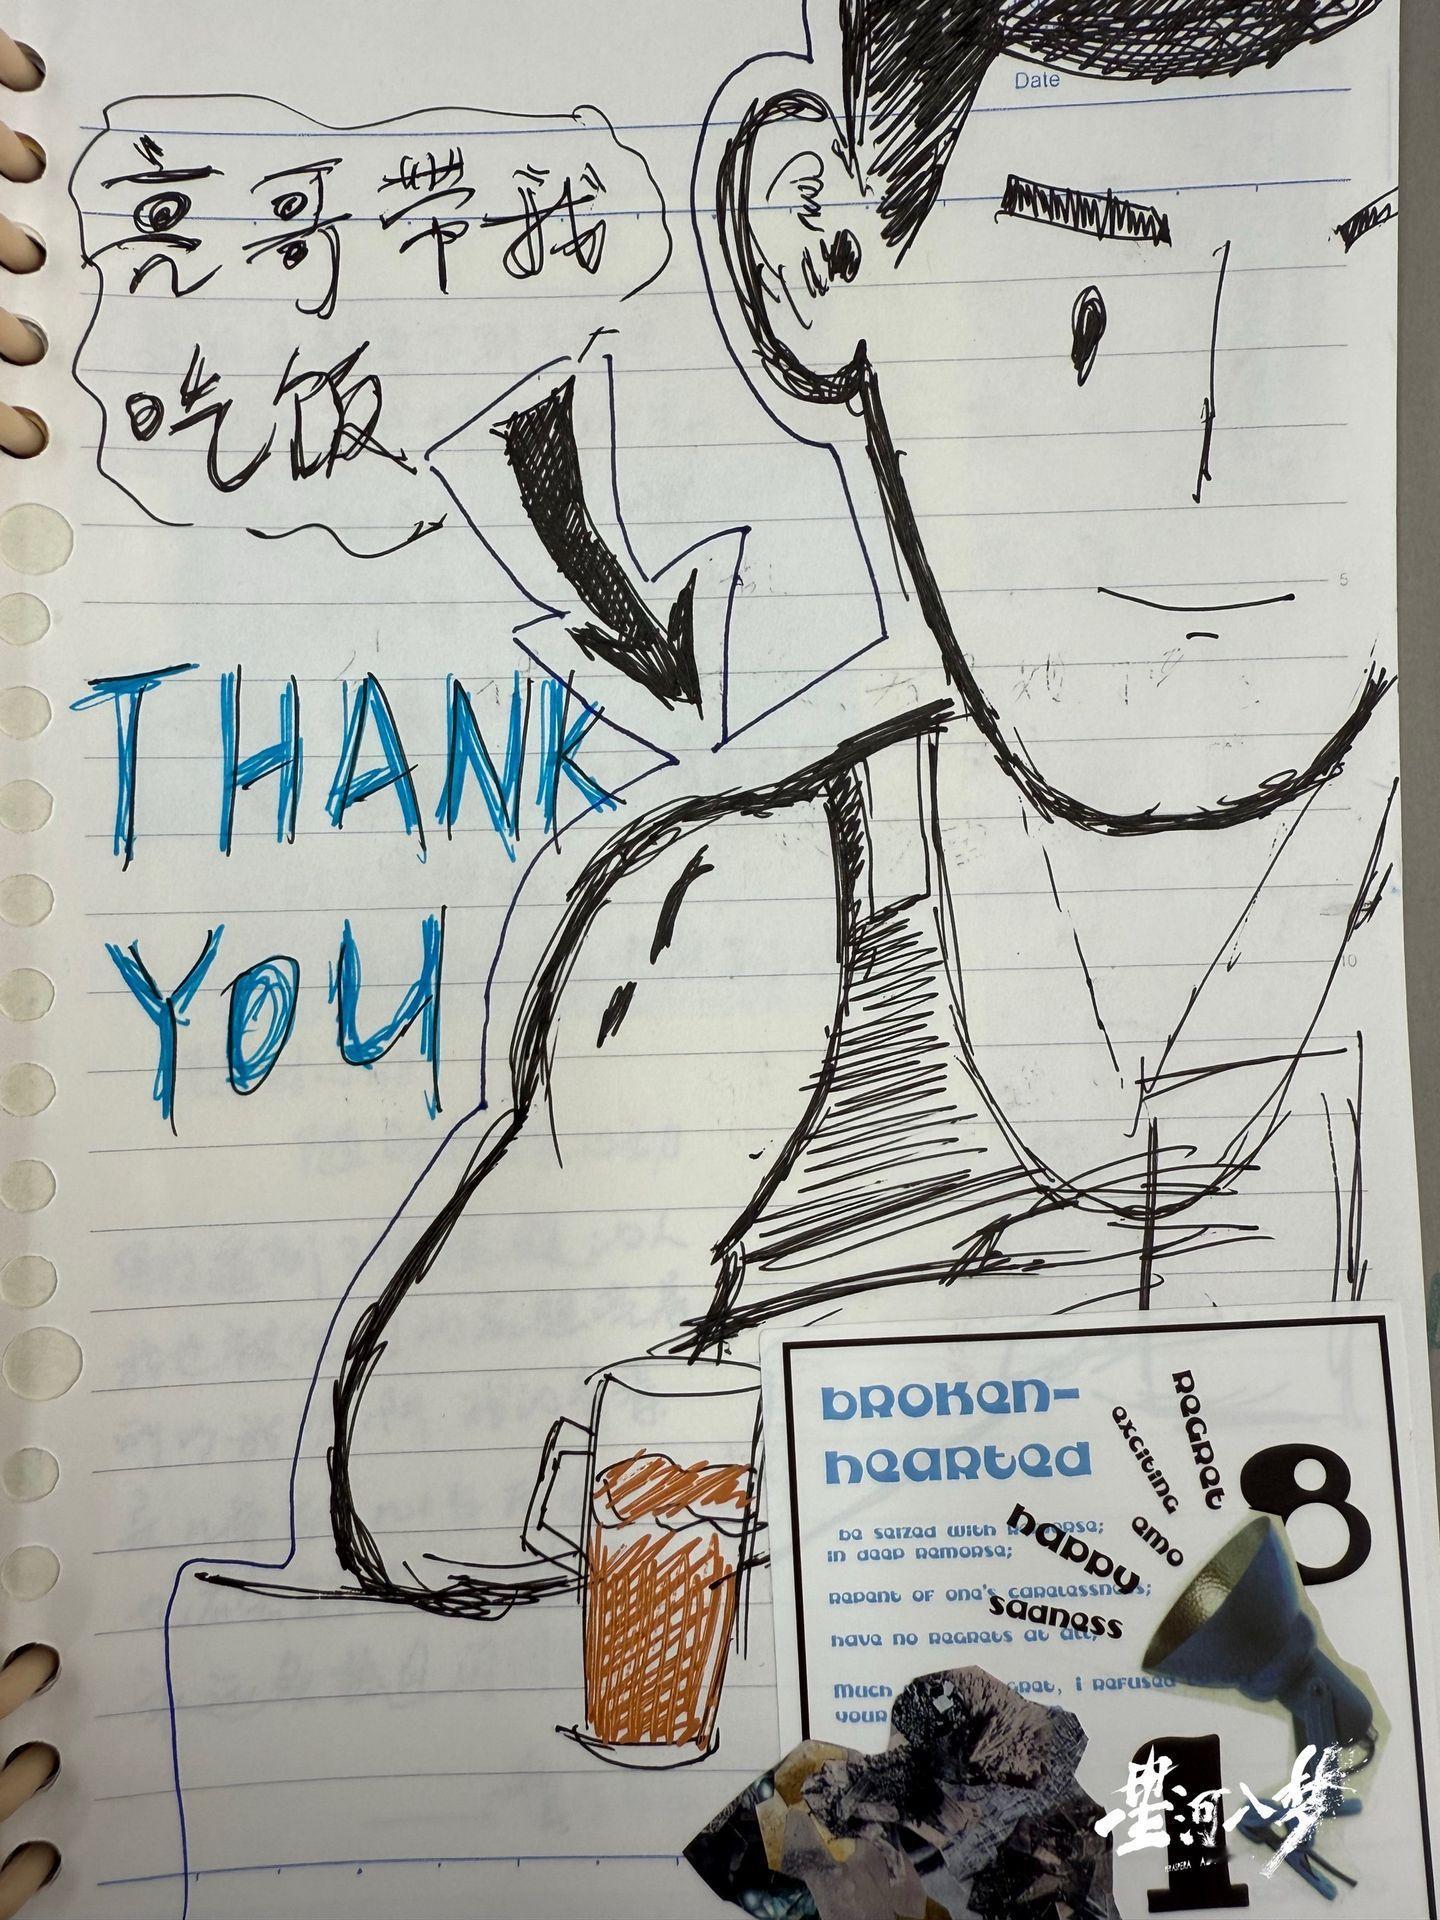 Date
亮哥带我
吃饭
5
THANK
YOU
10
BROKEN-
HEARTED
REGRET
exciting
emo
happy
sadness
8
Be seized with
in deep remorse;
Repent of one's carelessness;
have no regrets at all,
Much
, i refused
your
1
星河入梦